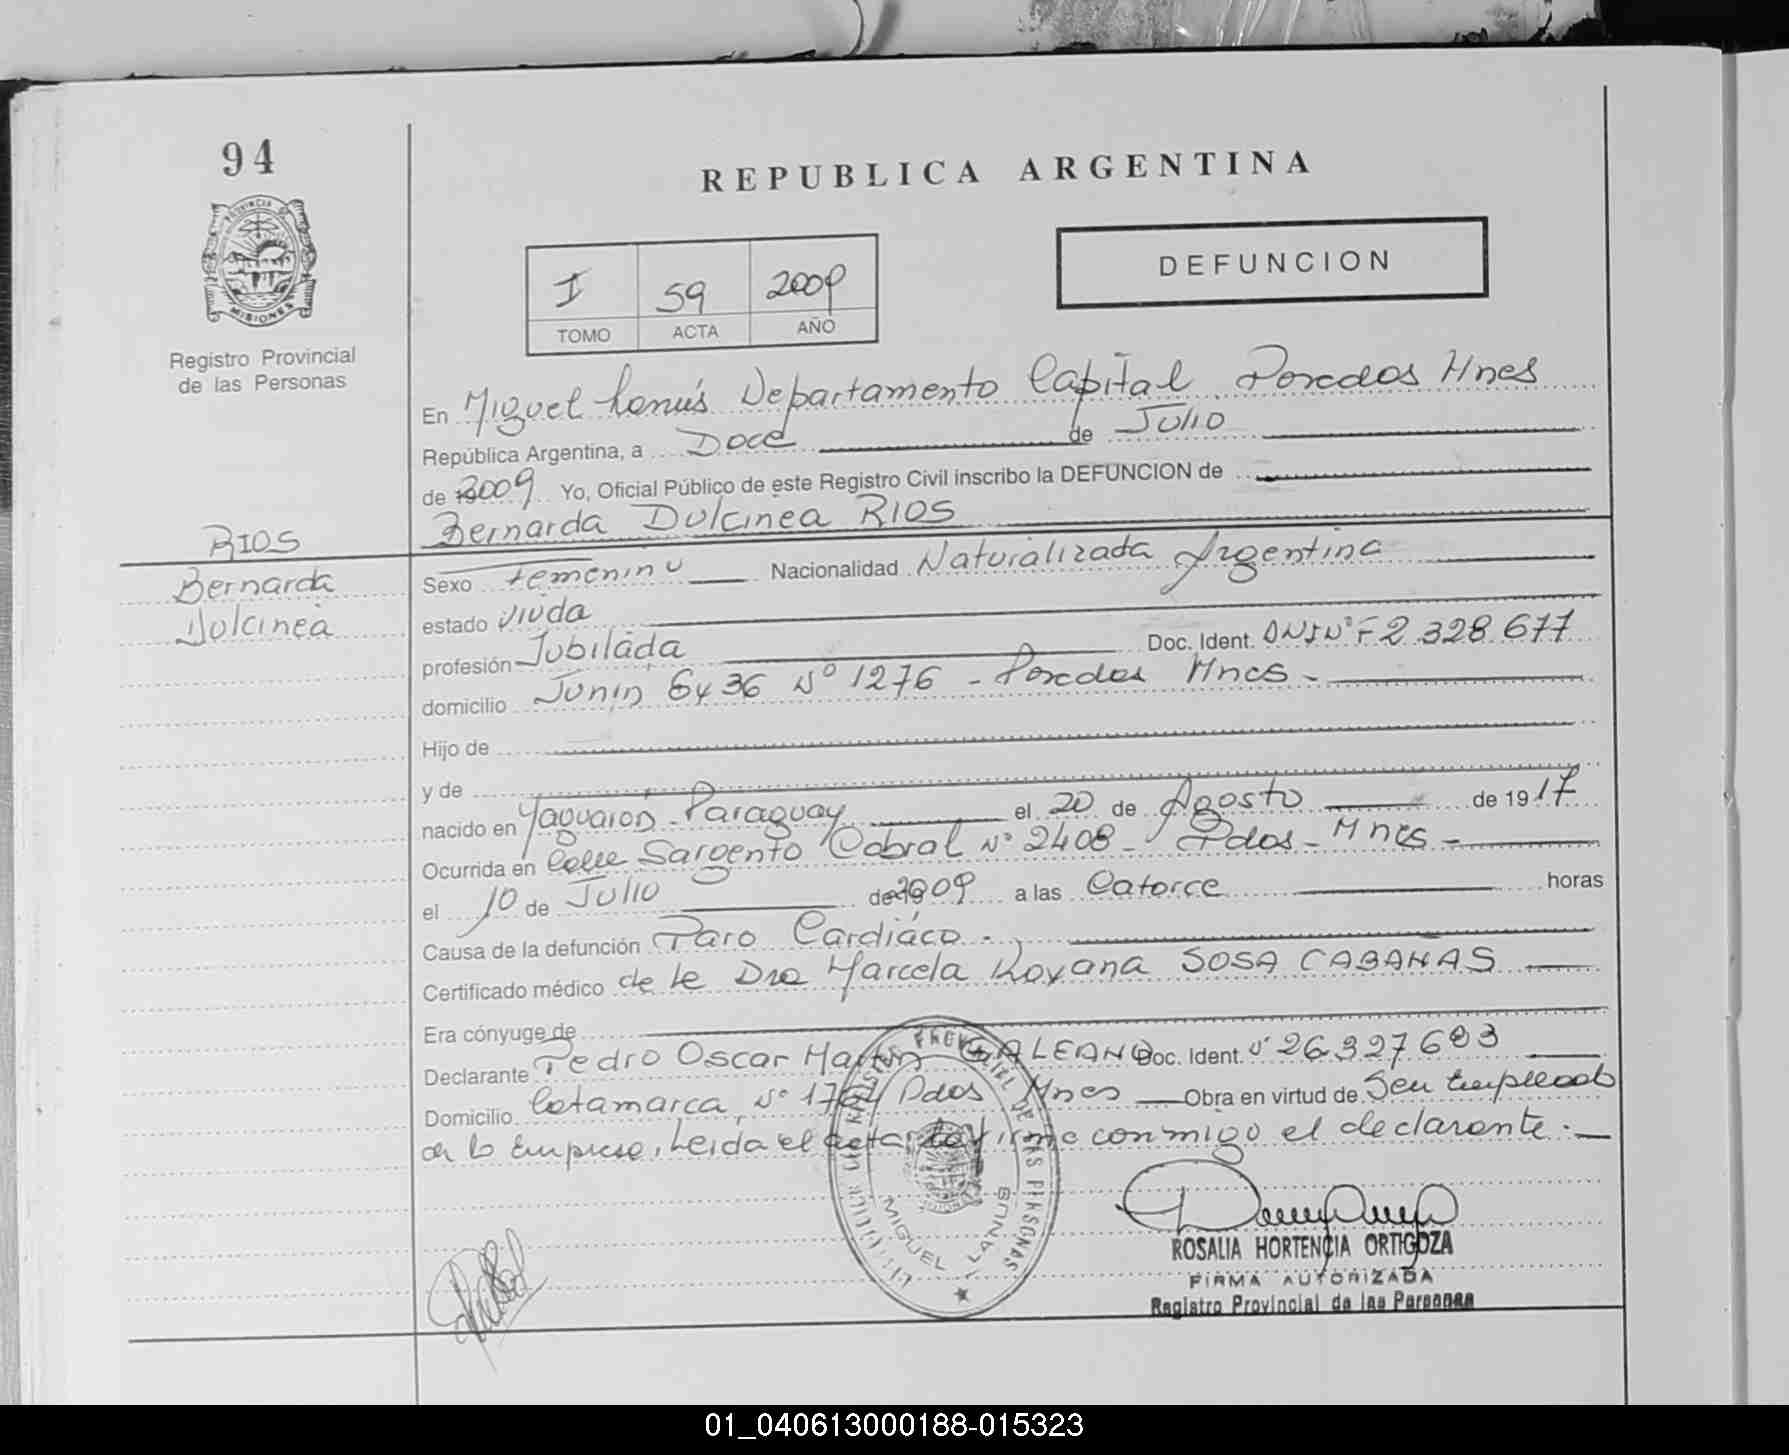 94
REPUBLICA ARGENTINA
PROVINCIA DE MISIONES
DEFUNCION
I 59 2009
TOMO ACTA AÑO
Registro Provincial
de las Personas
En Miguel Lanús Departamento Capital Posadas Mnes
República Argentina, a Doce de Julio
de 2009 Yo, Oficial Público de este Registro Civil inscribo la DEFUNCION de
Bernarda Dulcinea RIOS
RIOS
Bernarda
Dulcinea
Sexo Femenino Nacionalidad Naturalizada Argentina
estado Viuda
profesión Jubilada Doc. Ident. DNI Nº F 2.328.677
domicilio Junin 6 y 36 Nº 1276 - Posadas Mnes -
Hijo de
y de
nacido en Yaguarón - Paraguay el 20 de Agosto de 1917
Ocurrida en Calle Sargento Cabral Nº 2408 - Pdas - Mnes -
el 10 de Julio de 2009 a las Catorce horas
Causa de la defunción Paro Cardiáco -
Certificado médico de la Dra Marcela Roxana SOSA CABAÑAS
Era cónyuge de
Declarante Pedro Oscar Martin GALEANO Doc. Ident. Nº 26.327.603
Domicilio Catamarca Nº 1764 Pdas Mnes Obra en virtud de Ser Empleado
de la Empresa, Leida el acta la firma conmigo el declarante.
REGISTRO PROVINCIAL DE LAS PERSONAS
MIGUEL LANUS
ROSALIA HORTENCIA ORTIGOZA
FIRMA AUTORIZADA
Registro Provincial de las Personas
01_040613000188-015323